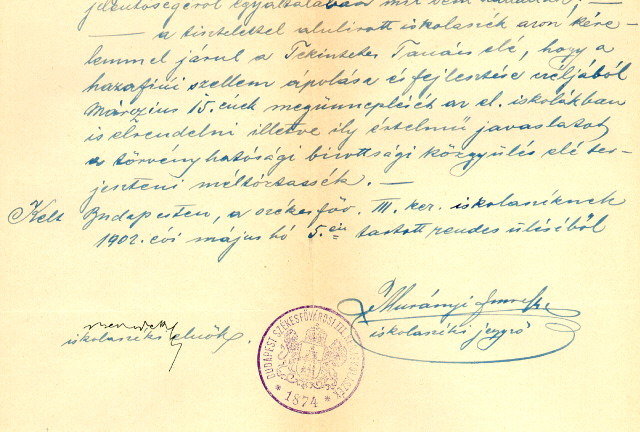 jelentőségéről egyáltalában
— a tisztelettel alulirott iskolaszék azon kére-
lemmel járul a Tekintetes Tanács elé, hogy a
hazafiui szellem ápolása és fejlesztése céljából
Márczius 15.ének megünneplését az el. iskolákban
is elrendelni illetve ily értelmű javaslatot
a törvényhatósági bizottsági közgyűlés elé ter-
jeszteni méltóztassék. —
Kelt Budapesten, a székesfőv. III. ker. iskolaszéknek
1902. évi május hó 5.én tartott rendes üléséből
iskolaszéki elnök.
Murányi Imre
iskolaszéki jegyző
BUDAPEST SZÉKESFŐVÁROSI
* 1874 *